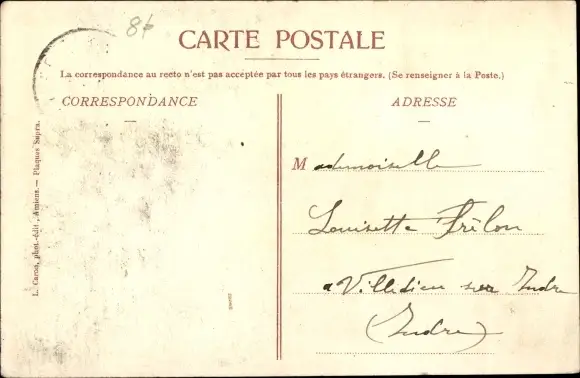 8f
CARTE POSTALE
La correspondance au recto n'est pas acceptée par tous les pays étrangers. (Se renseigner à la Poste.)
CORRESPONDANCE
ADRESSE
L. Caron, phot.-édit., Amiens. — Plaques Sopra.
Mademoiselle
Louisette Frêlon
a Villedieu sur Indre
(Indre)